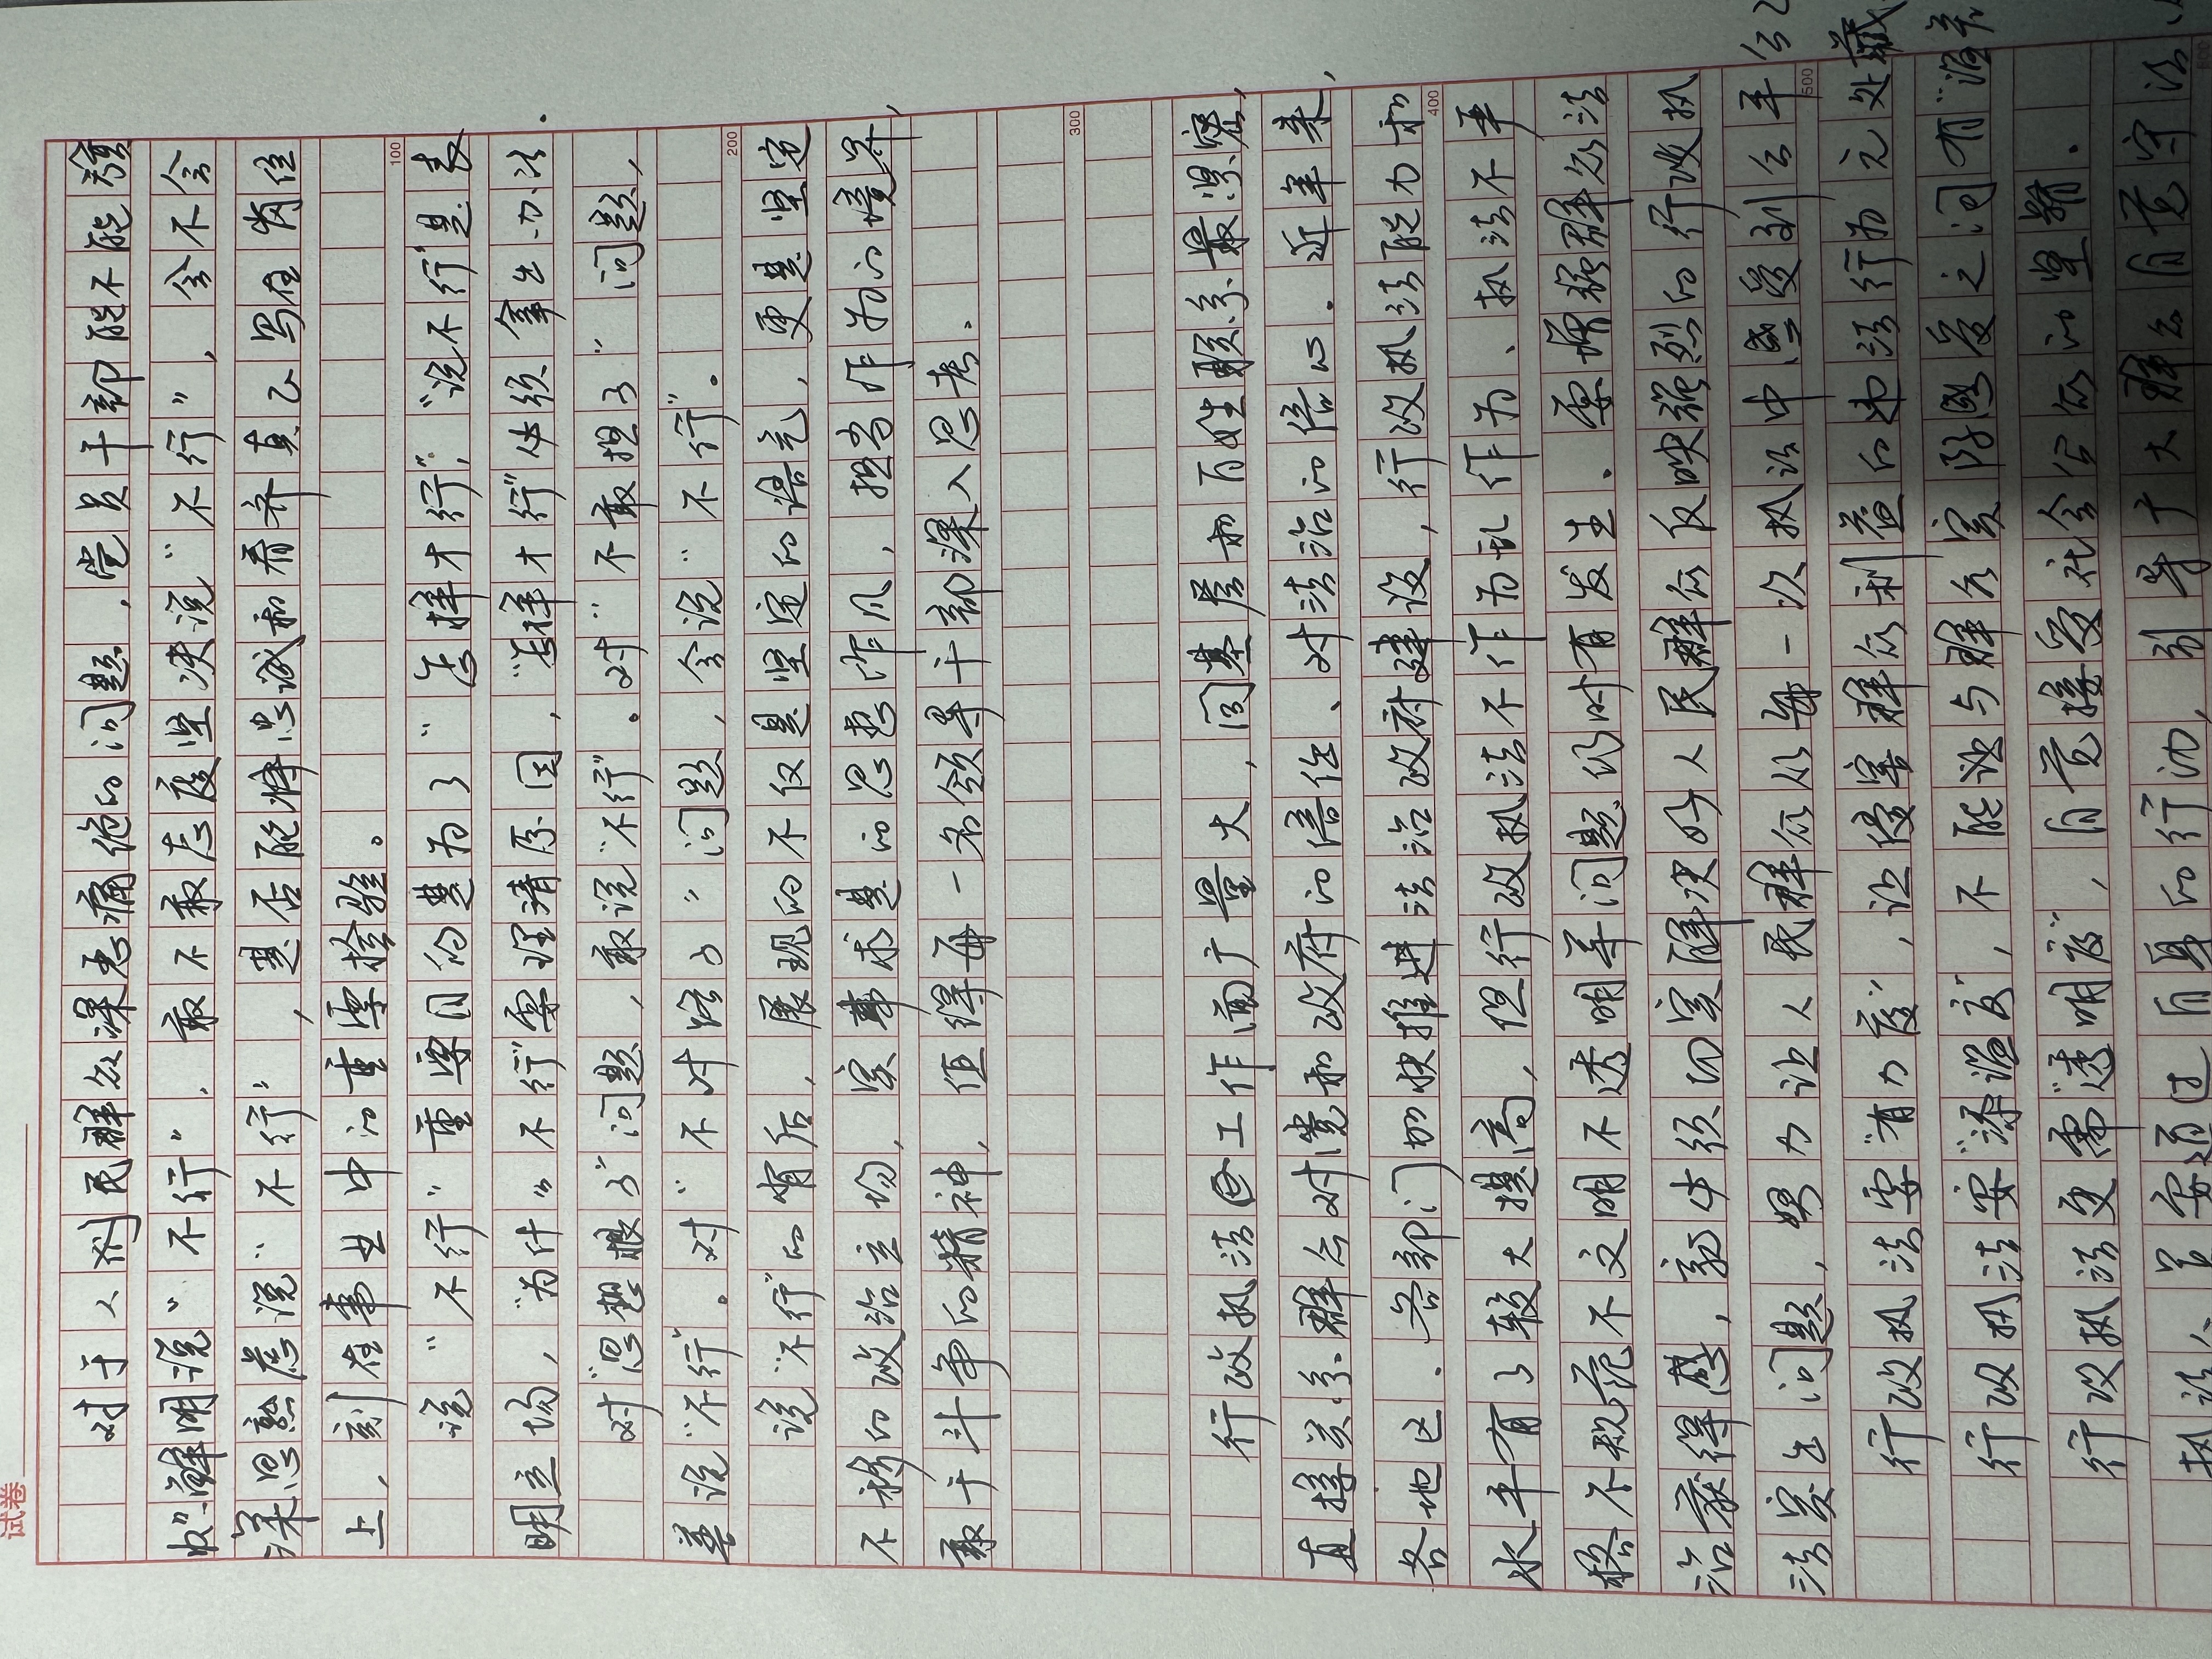 试卷
对于人民群众深恶痛绝的问题，党员干部能不能旗
帜鲜明说“不行”，敢不敢态度坚决说“不行”，会不会
深思熟虑说“不行”，是否能将忠诚和看齐真正写在岗位
上，刻在事业中的重要检验。
100
说“不行”重要目的是为了“怎样才行”，“说不行”是表
明立场，“为什么不行”要理清原因，“怎样才行”必须拿出办法．
对“思想根子”问题，敢说“不行”。对“不敢担子”问题，
善说“不行”。对“不对路子”问题，会说“不行”。
200
说“不行”的背后，展现的不仅是坚定的语气，更是坚定
不移的政治立场，实事求是的思想作风，担当作为的境界，
敢于斗争的精神，值得每一名领导干部深入思考．
300
行政执法工作面广量大，同基层和百姓联系最紧密，
直接关系群众对党和政府的信任、对法治的信心．近年来，
各地区、各部门加快推进法治政府建设，行政执法能力和
400
水平有了较大提高，但行政执法不作为乱作为、执法不严
格不规范不文明不透明等问题仍时有发生．要增强群众法
治获得感，就必须切实解决好人民群众反映强烈的行政执
法突出问题，努力让人民群众从每一次执法中感受到公平公
500
行政执法要“有力度”，让侵害群众利益的违法行为无处藏
行政执法要“添温度”，不能让与群众实际感受之间有“温差
行政执法更需“透明度”，自觉接受社会公众的监督．
执法人员要通过自身的行动，引导广大群众自觉守法、
600